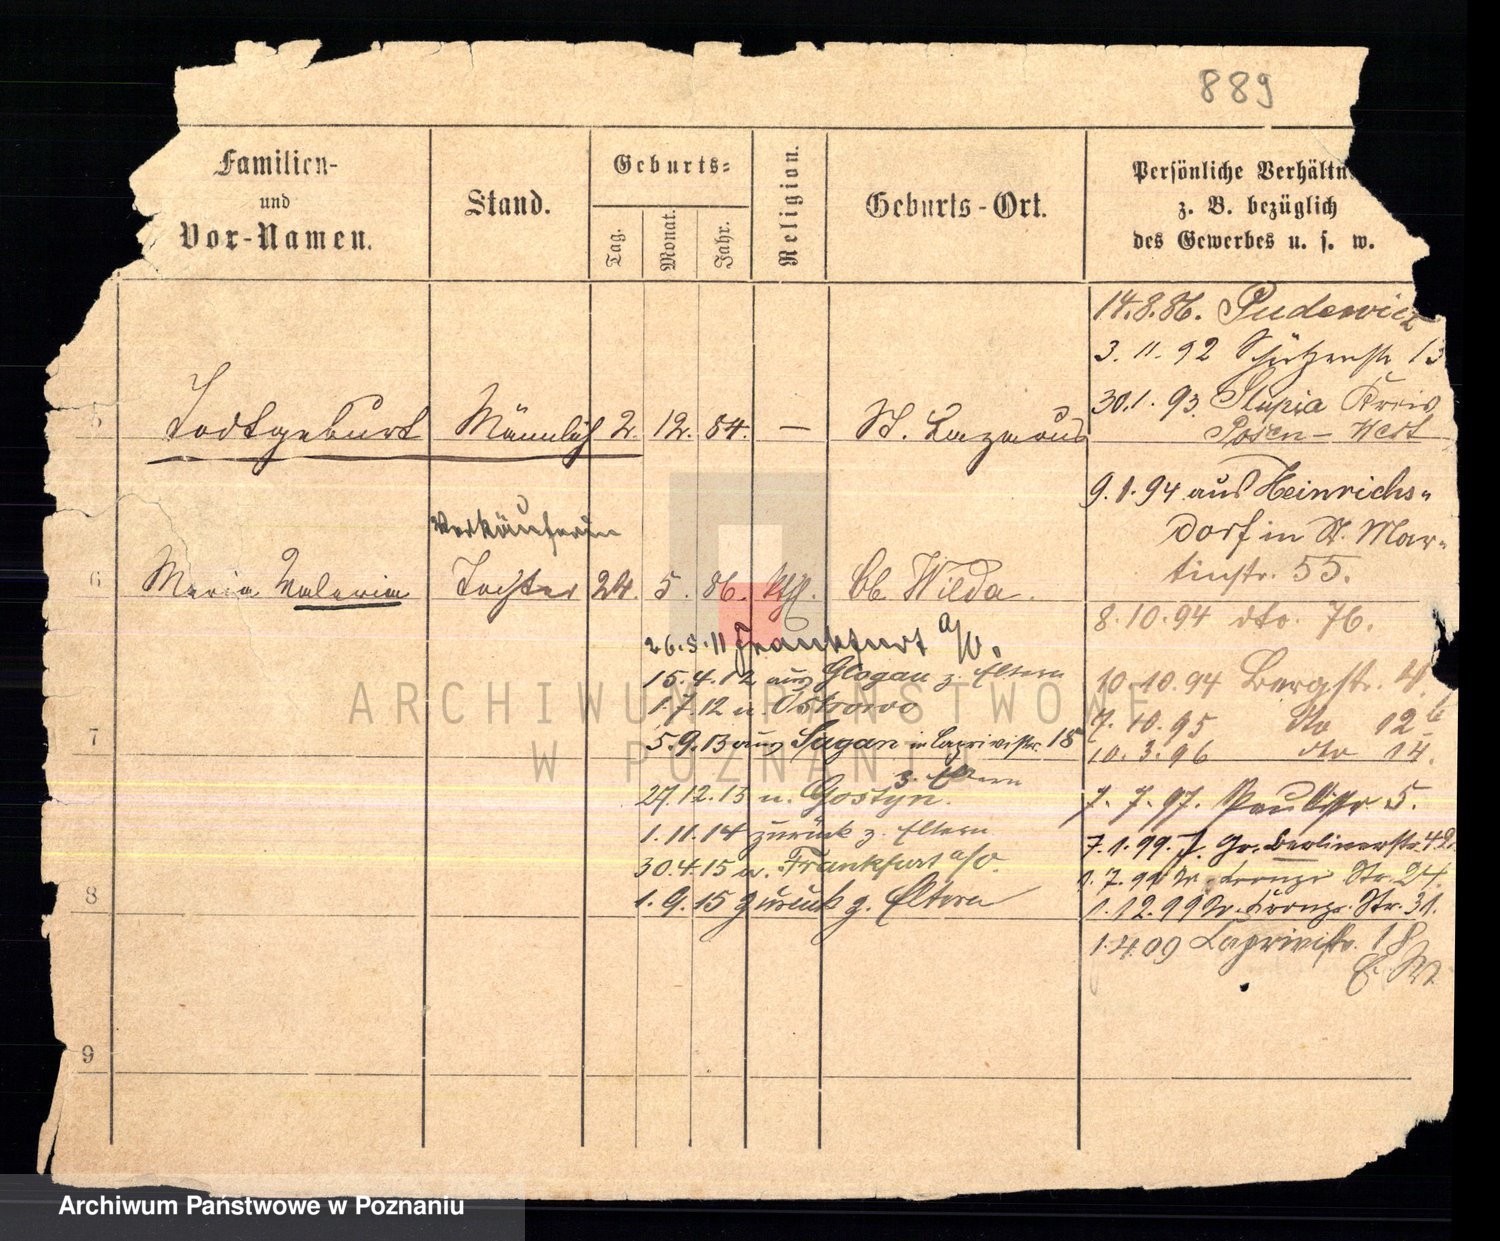 889
Familien-
und
Vor-Namen.
Stand.
Geburts-
Tag.
Monat.
Jahr.
Religion.
Geburts-Ort.
Persönliche Verhältn
z. B. bezüglich
des Gewerbes u. s. w.
14.8.86. Pudewicz
3. 11. 92 Schützenstr 13
30.1.93. Slupia Kreis
Posen-West
5 Todtgeburt Männlich 2. 12. 84. — St. Lazarus
9.1.94 aus Heinrichs-
dorf in St. Mar-
tinstr. 55.
Verkäuferin
6 Maria Valeria Tochter 24. 5. 86. kth. Ob. Wilda.
8.10.94 dto. 76.
26.5.11 Frankfurt a/O.
15.4.12 aus Glogau z. Eltern
10.10.94 Bergstr. 4.
1.7.12 n Ostrowo
7.10.95 dto 12b
7
5.9.13 aus Sagan in Caprivistr. 18
z. Eltern
10.3.96 dto 14.
27.12.13 n. Gostyn.
7.7.97. Paulistr 5.
1.11.14 zurück z. Eltern
7.1.99. Gr. Berlinerstr. 42.
30.4.15 n. Frankfurt a/O.
1.7.99 Kronpr. Str. 24.
8
1.9.15 zurück z. Eltern
1.12.99 Kronpr. Str. 31.
1.4.09 Caprivistr. 18
9
ARCHIWUM PAŃSTWOWE
W POZNANIU
Archiwum Państwowe w Poznaniu